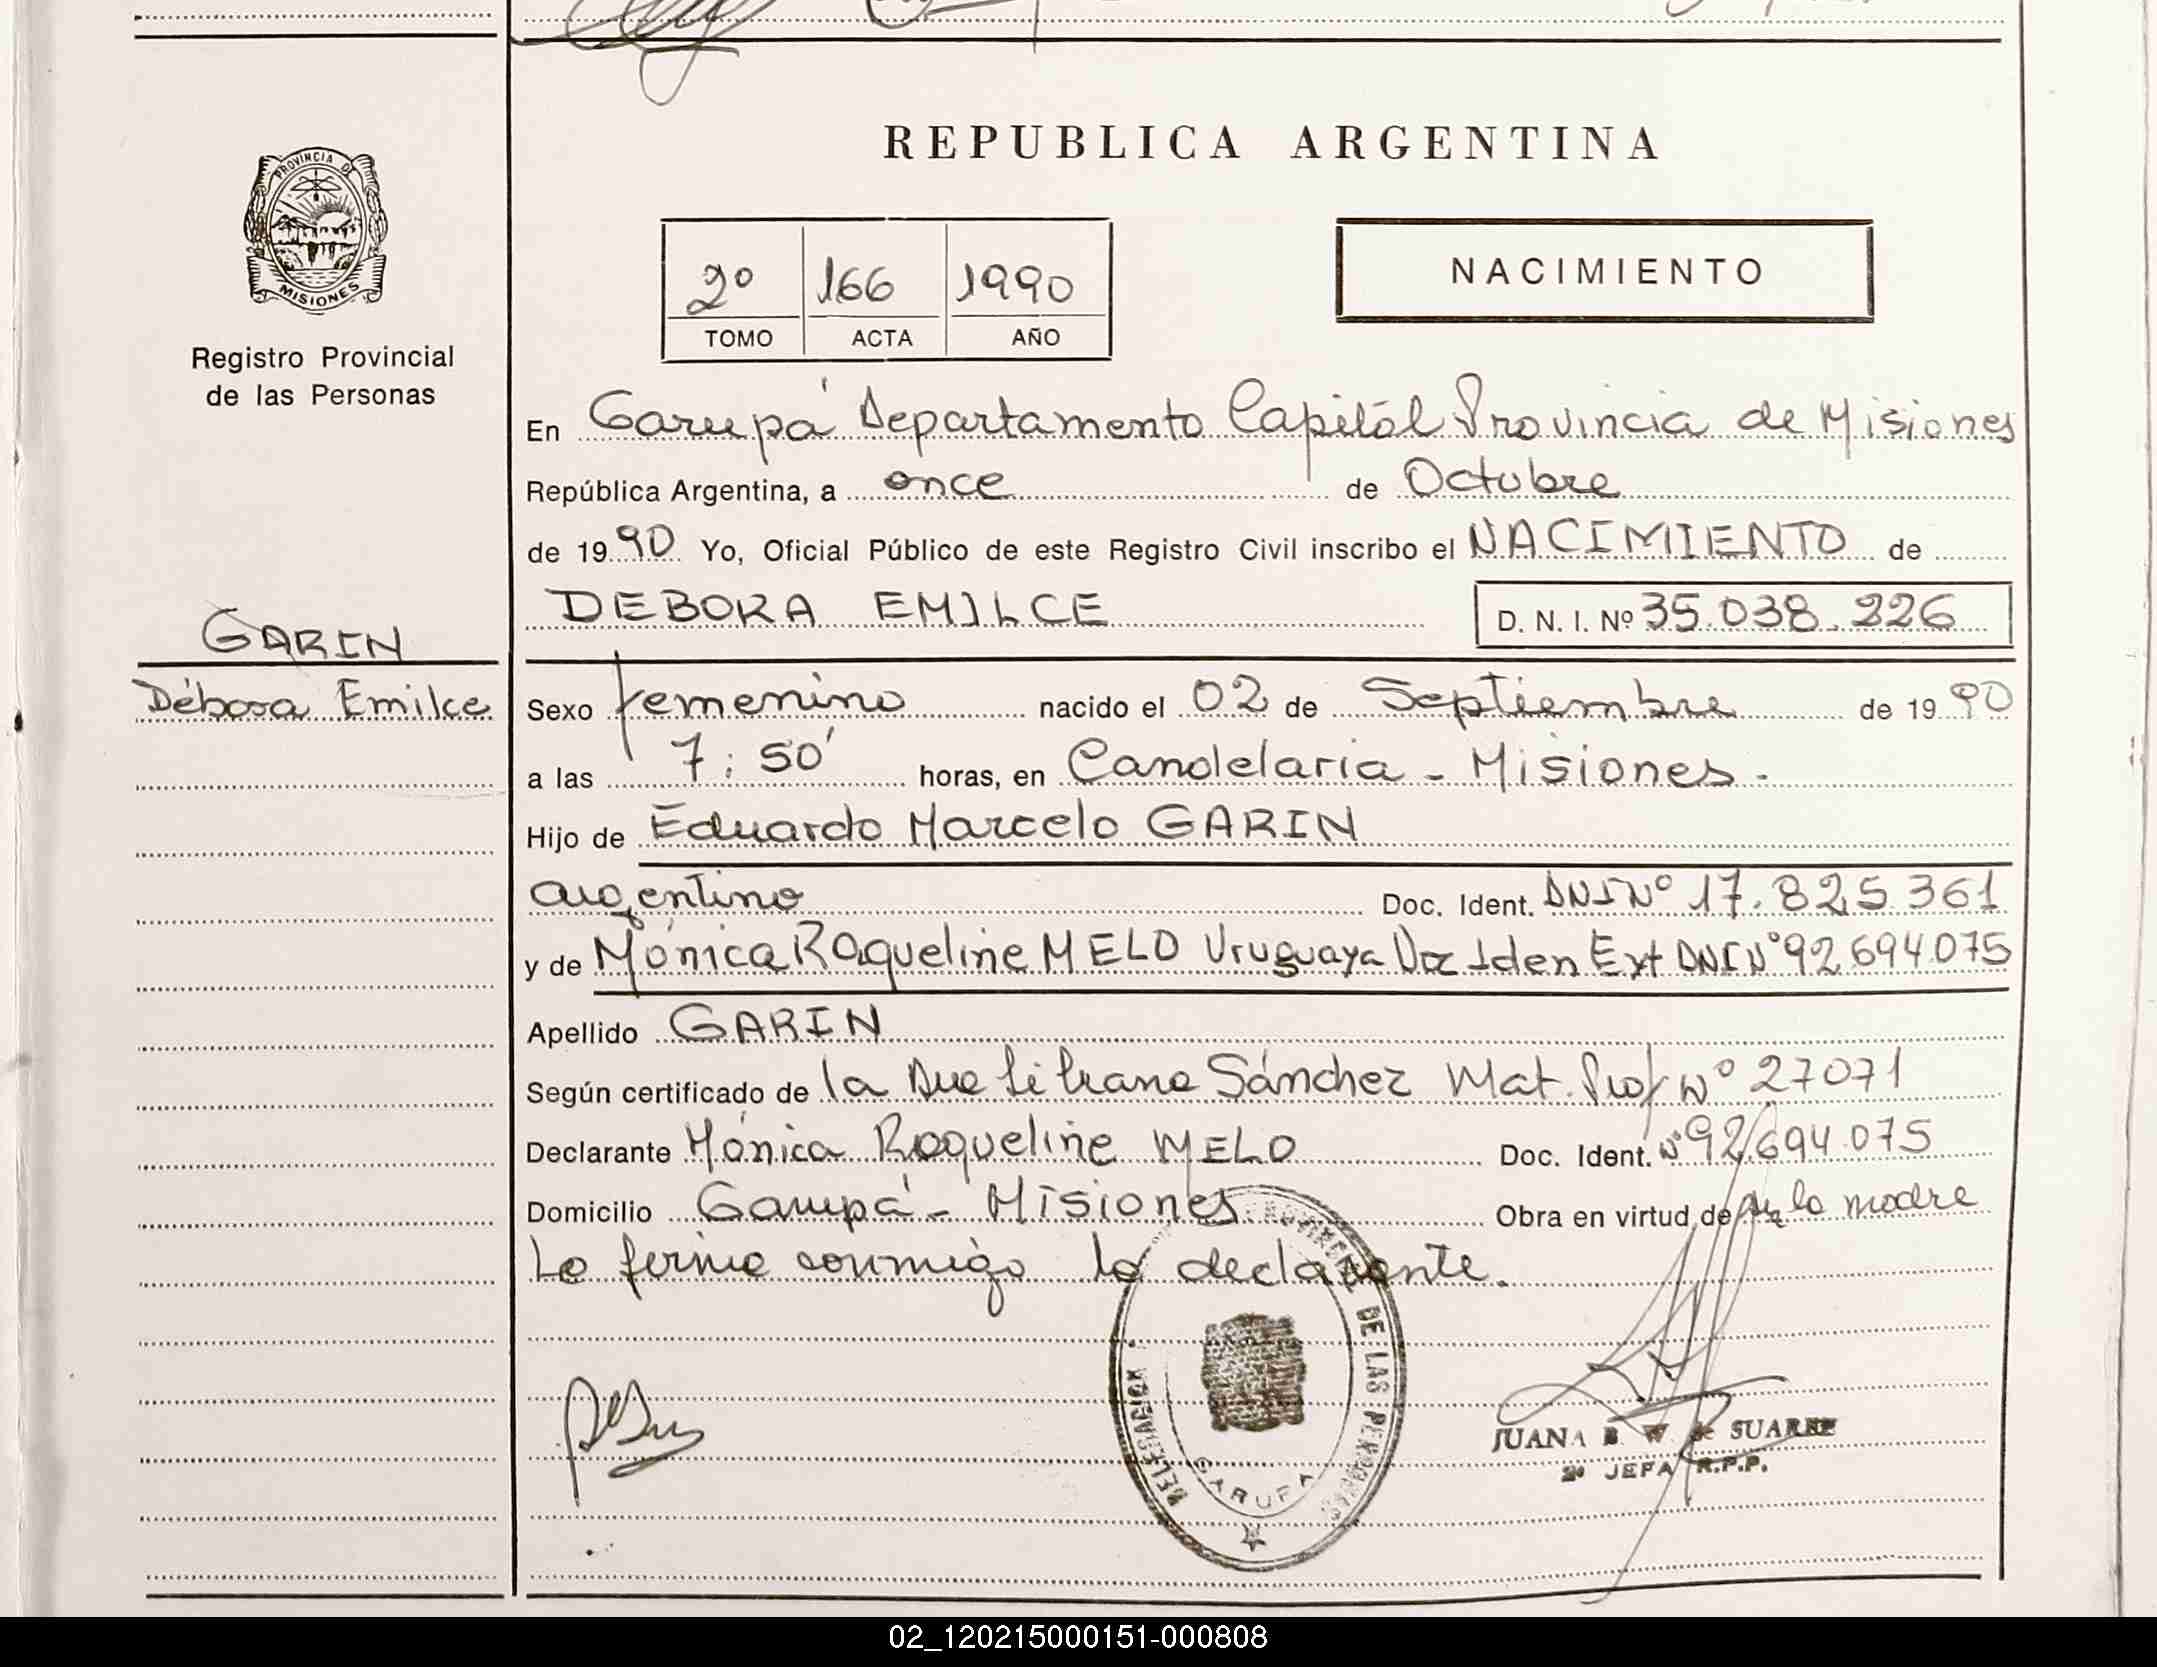 REPUBLICA ARGENTINA
PROVINCIA DE
MISIONES
Registro Provincial
de las Personas
2º 166 1990
TOMO ACTA AÑO
NACIMIENTO
En Garupá Departamento Capitál Provincia de Misiones
República Argentina, a once de Octubre
de 1990 Yo, Oficial Público de este Registro Civil inscribo el NACIMIENTO de
DEBORA EMILCE D. N. I. Nº 35.038.226
GARIN
Débora Emilce
Sexo femenino nacido el 02 de Septiembre de 1990
a las 7:50' horas, en Candelaria - Misiones -
Hijo de Eduardo Marcelo GARIN
argentino Doc. Ident. DNI Nº 17.825.361
y de Mónica Raqueline MELO Uruguaya Doc Iden Ext DNI Nº 92694075
Apellido GARIN
Según certificado de la Sánchez Mat. Prof Nº 27071
Declarante Mónica Raqueline MELO Doc. Ident. Nº 92.694.075
Domicilio Garupá - Misiones Obra en virtud de la madre
La firma conmigo la declarante.
DELEGACION DE LAS PERSONAS
GARUPA
JUANA B. W. de SUAREZ
2º JEFA R.P.P.
02_120215000151-000808